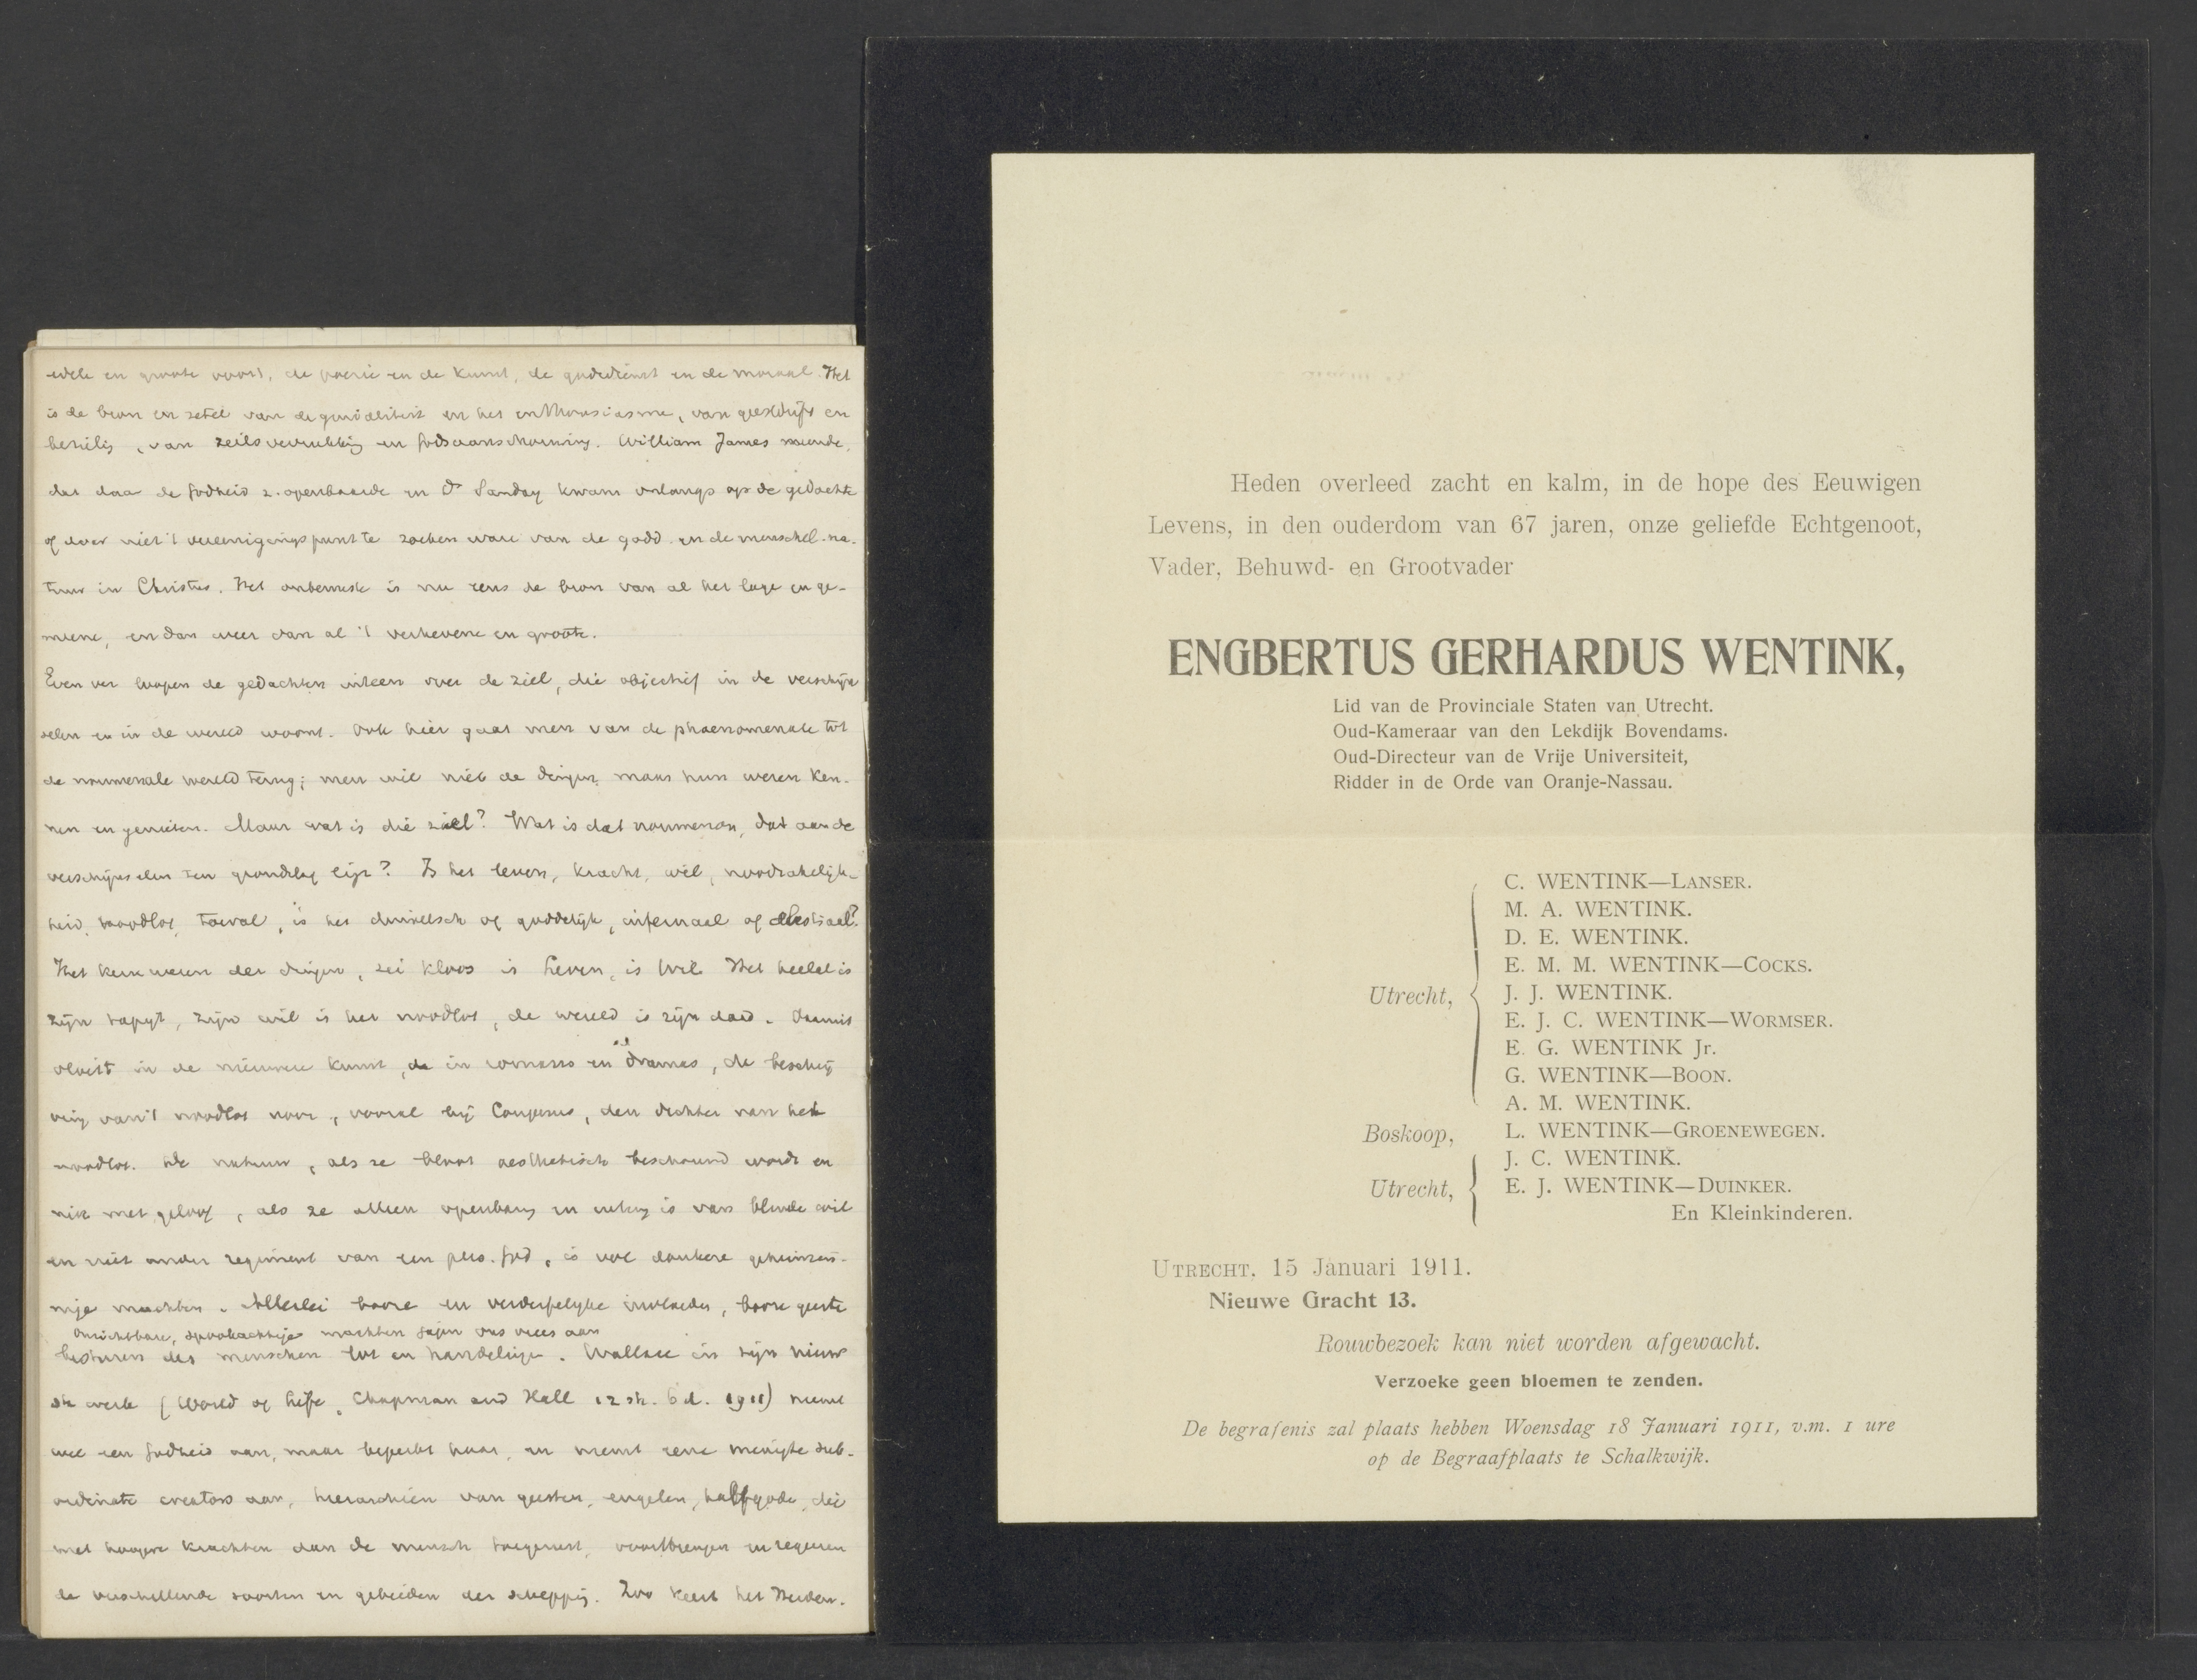 edele en groote voort, de poezie en de kunst, de godsdienst en de moraal. Het
is de bron en zetel van de genialiteit en het enthousiasme, van geestdrift en
bezielg, van zielsverrukking en Godsaanschouwing. William James meende,
dat daar de Godheid z. openbaarde en Dr Sanday kwam onlangs op de gedachte
of daar niet 't vereenigingspunt te zoeken ware van de godd. en de menschel. na-
tuur in Christus. Het onbewuste is nu eens de bron van al het lage en ge-
meene, en dan weer van al 't verhevene en groote.
Even ver loopen de gedachten uiteen over de ziel, die objectief in de verschijn
selen en in de wereld woont. Ook hier gaat men van de phaenomenale tot
de noumenale wereld terug; men wil niet de dingen maar hun wezen ken-
nen en genieten. Maar wat is die ziel? Wat is dat noumenon, dat aan de
verschijnselen ten grondslag ligt? Is het leven, kracht, wil, noodzakelijk-
heid, noodlot, toeval, is het duivelsch of goddelijk, infernaal of celestiaal?
Het kern wezen der dingen, zei Kloos is Leven, is Wil. Het heelal is
zijn tapijt, zijn wil is het noodlot, de wereld is zijn daad. Daaruit
vloeit in de nieuwere kunst, de in romans en drama's, de beschrij
ving van 't noodlot voor, vooral bij Couperus, den dichter van het
noodlot. De natuur, als ze bloot aesthetisch beschouwd wordt en
niet met geloof, als ze alleen openbarg en werkg is van blinde wil
en niet onder regiment van een pers. God, is vol donkere geheimzin-
nige machten. Allerlei booze en verderfelijke invloeden, booze geeste
onzichtbare, spookachtige machten grijn ons vrees aan
besturen des menschen lot en handelinge. Wallace in zijn nieuw
ste werk (World of Life, Chapman and Hall 12 sh. 6 d. 1911) neemt
wel een Godheid aan, maar beperkt haar, en neemt eene menigte sub-
ordinate creators aan, hierarchieën van geesten, engelen, halfgode, die
met hoogere krachten dan de mensch toegerust, voortbrengen en regeeren
de verschillende soorten en gebieden der schepping. Zoo keert het Heiden-
Heden overleed zacht en kalm, in de hope des Eeuwigen
Levens, in den ouderdom van 67 jaren, onze geliefde Echtgenoot,
Vader, Behuwd- en Grootvader
ENGBERTUS GERHARDUS WENTINK,
Lid van de Provinciale Staten van Utrecht.
Oud-Kameraar van den Lekdijk Bovendams.
Oud-Directeur van de Vrije Universiteit,
Ridder in de Orde van Oranje-Nassau.
C. WENTINK—LANSER.
M. A. WENTINK.
D. E. WENTINK.
E. M. M. WENTINK—COCKS.
Utrecht, J. J. WENTINK.
E. J. C. WENTINK—WORMSER.
E. G. WENTINK Jr.
G. WENTINK—BOON.
A. M. WENTINK.
Boskoop, L. WENTINK—GROENEWEGEN.
J. C. WENTINK.
Utrecht, E. J. WENTINK—DUINKER.
En Kleinkinderen.
UTRECHT, 15 Januari 1911.
Nieuwe Gracht 13.
Rouwbezoek kan niet worden afgewacht.
Verzoeke geen bloemen te zenden.
De begrafenis zal plaats hebben Woensdag 18 Januari 1911, v.m. 1 ure
op de Begraafplaats te Schalkwijk.